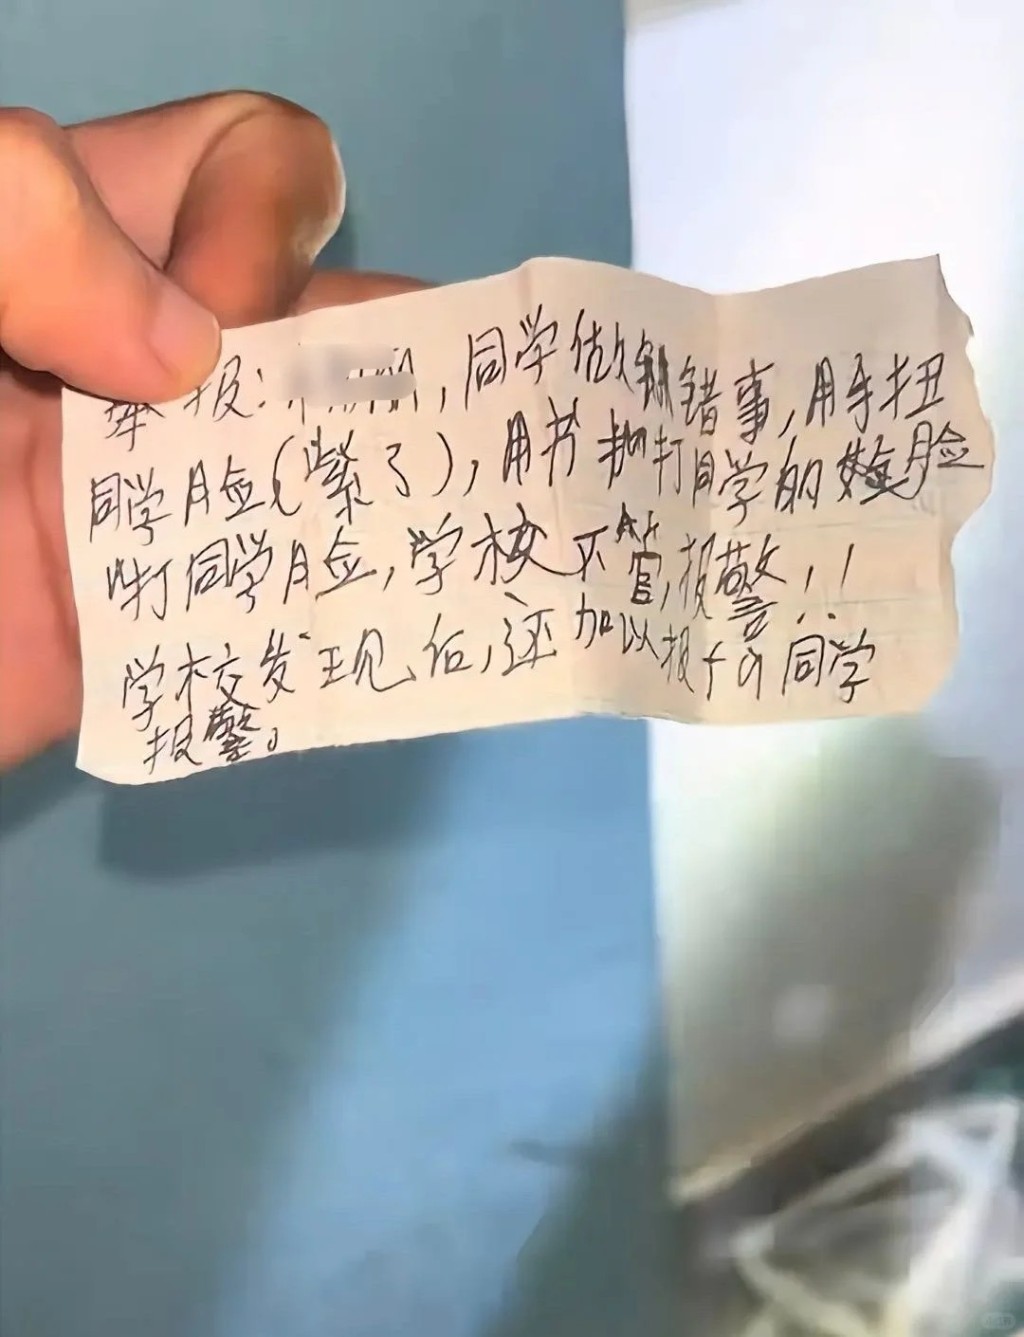 举报：，同学做错事，用手扭
同学脸（紫了），用书抽打同学的脸
啪打同学脸，学校不管，报警！！
学校发现后，还加以报fq同学
报警。